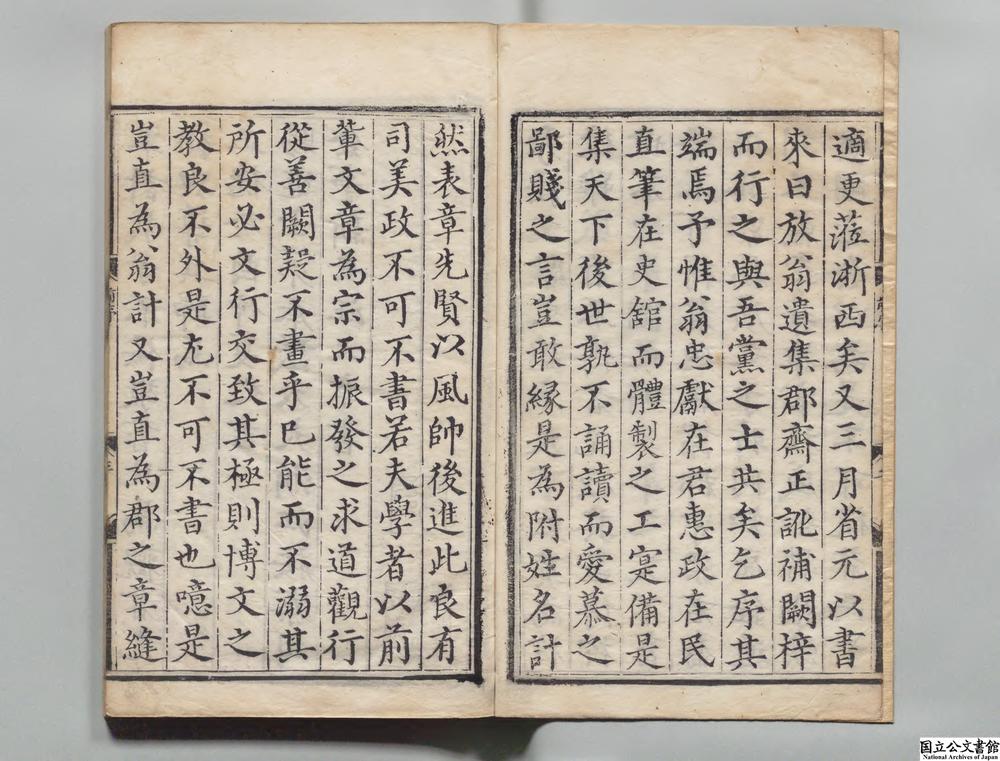 適更蒞浙西矣又三月省元以書
來曰放翁遺集郡齋正訛補闕梓
而行之與吾黨之士共矣乞序其
端焉予惟翁忠獻在君惠政在民
直筆在史館而體製之工寔備是
集天下後世孰不誦讀而愛慕之
鄙賤之言豈敢緣是為附姓名計
然表章先賢以風帥後進此良有
司美政不可不書若夫學者以前
輩文章為宗而振發之求道觀行
從善闕疑不畫乎已能而不溺其
所安必文行交致其極則博文之
教良不外是尤不可不書也噫是
豈直為翁計又豈直為郡之章縫
国立公文書館
National Archives of Japan